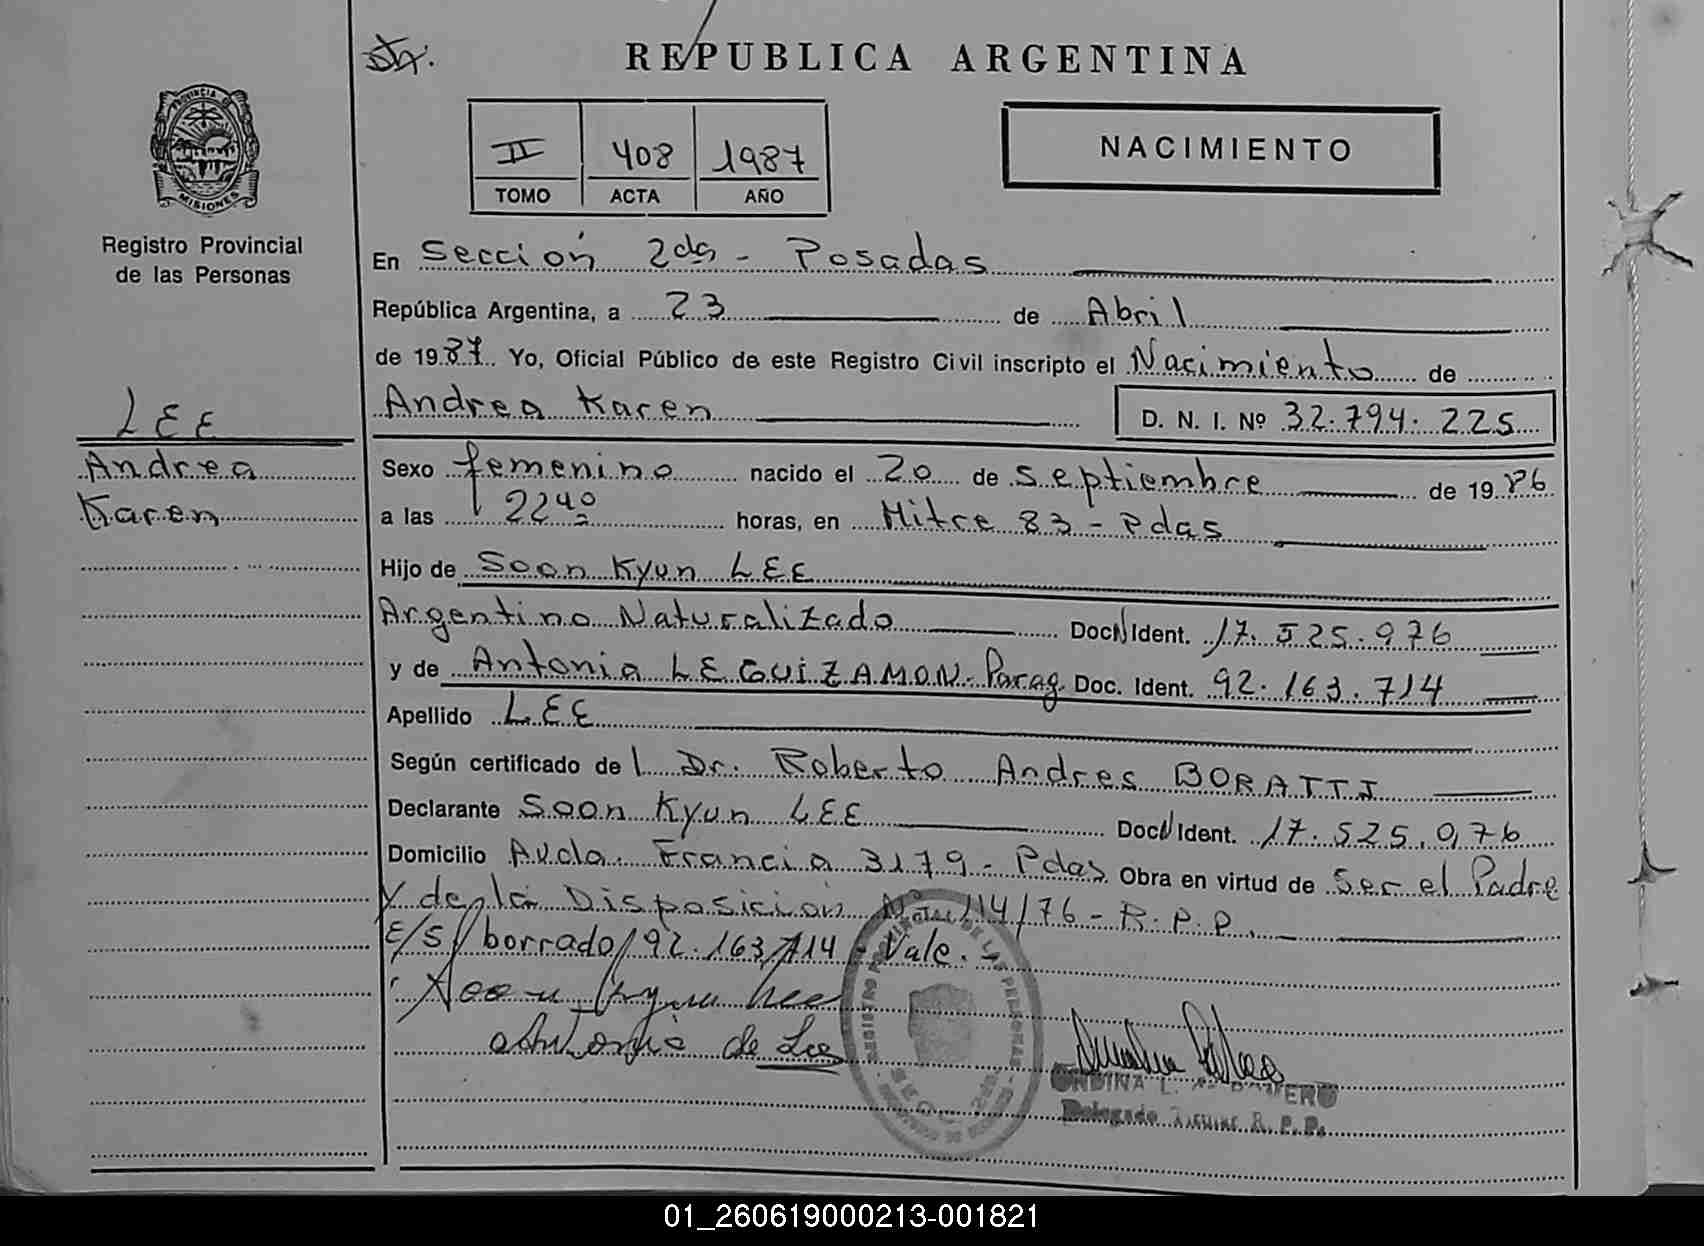 REPUBLICA ARGENTINA
PROVINCIA DE
MISIONES
Registro Provincial
de las Personas
II 408 1987
TOMO ACTA AÑO
NACIMIENTO
En Sección 2da - Posadas
República Argentina, a 23 de Abril
de 1987. Yo, Oficial Público de este Registro Civil inscripto el Nacimiento de
LEE
Andrea
Karen
Andrea Karen D. N. I. Nº 32.794.225
Sexo femenino nacido el 20 de septiembre de 1986
a las 22 40 horas, en Mitre 83 - Pdas
Hijo de Soon Kyun LEE
Argentino Naturalizado Doc. Ident. 17.525.976
y de Antonia LEGUIZAMON - Parag. Doc. Ident. 92.163.714
Apellido LEE
Según certificado del Dr. Roberto Andres BORATTI
Declarante Soon Kyun LEE Doc. Ident. 17.525.976
Domicilio Avda. Francia 3179 - Pdas Obra en virtud de Ser el Padre
y de la Disposicion Nº 114/76 - R.P.P.
E/S/borrado/92.163.714 - Vale.
Soon Kyun Lee
Antonia de Lee
REGISTRO PROVINCIAL DE LAS PERSONAS
Delegado R. P. P.
01_260619000213-001821